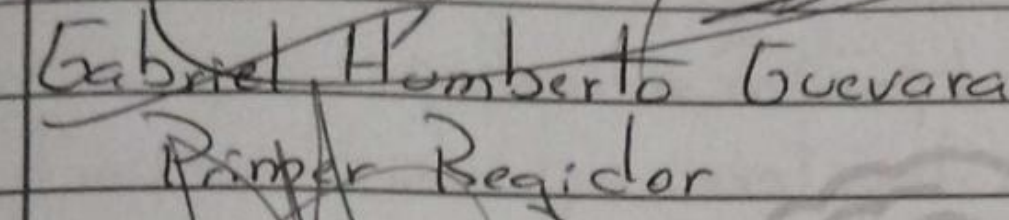 Gabriel Humberto Guevara
Primer Regidor